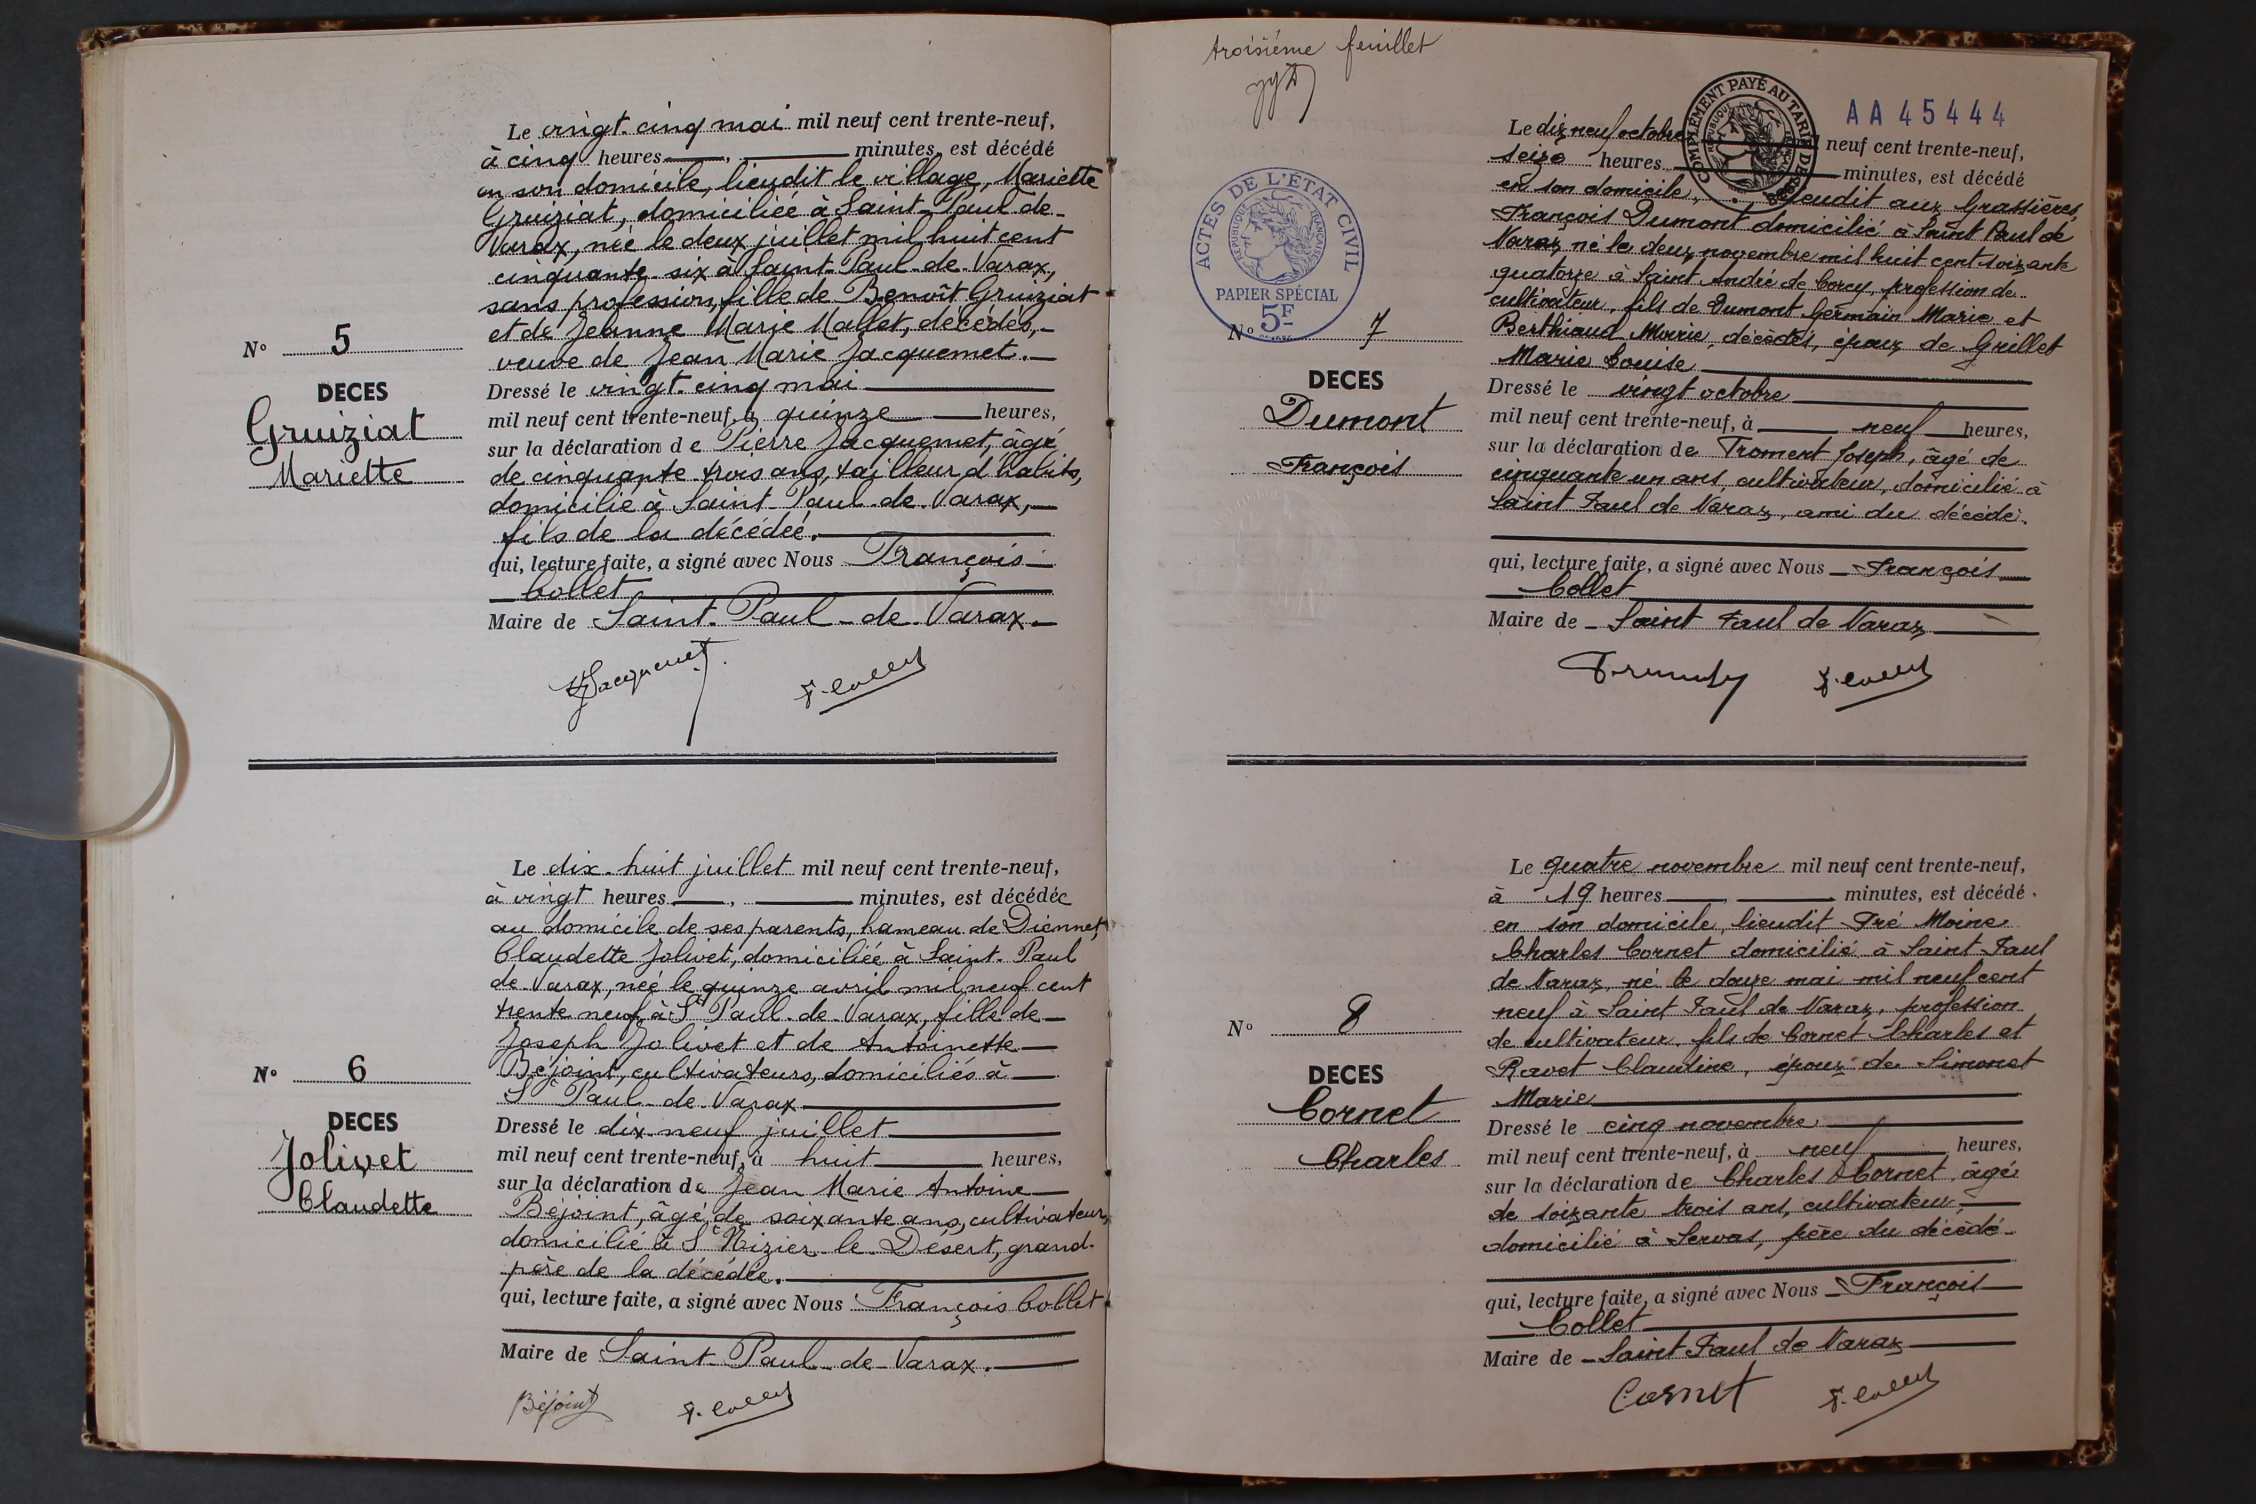 Le vingt-cinq mai mil neuf cent trente-neuf,
à cinq heures, minutes, est décédé
en son domicile, lieudit le village, Mariette
Gruiziat, domiciliée à Saint-Paul-de-
Varax, née le deux juillet mil huit cent
cinquante-six à Saint-Paul-de-Varax,
sans profession, fille de Benoît Gruiziat
et de Jeanne Marie Mallet, décédés,
veuve de Jean Marie Jacquemet.
N° 5
DECES
Gruiziat
Mariette
Dressé le vingt-cinq mai
mil neuf cent trente-neuf, à quinze heures,
sur la déclaration de Pierre Jacquemet, âgé
de cinquante trois ans, tailleur d'habits,
domicilié à Saint-Paul-de-Varax,
fils de la décédée.
qui, lecture faite, a signé avec Nous François
Collet
Maire de Saint-Paul-de-Varax
Jacquemet F. Collet
Le dix-huit juillet mil neuf cent trente-neuf,
à vingt heures, minutes, est décédée
au domicile de ses parents, hameau de Diennet,
Claudette Jolivet, domiciliée à Saint-Paul
de-Varax, née le quinze avril mil neuf cent
trente neuf à St Paul-de-Varax, fille de
Joseph Jolivet et de Antoinette
Béjoint, cultivateurs, domiciliés à
St Paul-de-Varax
N° 6
DECES
Jolivet
Claudette
Dressé le dix-neuf juillet
mil neuf cent trente-neuf, à huit heures,
sur la déclaration de Jean Marie Antoine
Béjoint, âgé de soixante ans, cultivateur,
domicilié à St Nizier-le-Désert, grand-
père de la décédée.
qui, lecture faite, a signé avec Nous François Collet
Maire de Saint-Paul-de-Varax.
Béjoint F. Collet
troisième feuillet
COMPLÉMENT PAYÉ AU TARIF DE
RÉPUBLIQUE FRANÇAISE
AA 45444
ACTES DE L'ÉTAT CIVIL
RÉPUBLIQUE FRANÇAISE
PAPIER SPÉCIAL
5F
Le dix neuf octobre neuf cent trente-neuf,
seize heures minutes, est décédé
en son domicile, lieudit aux Grassières,
François Dumont domicilié à Saint Paul de
Varax, né le deux novembre mil huit cent soixante
quatorze à Saint André de Corcy, profession de
cultivateur, fils de Dumont Germain Marie et
Berthiaud Marie, décédés, époux de Grillet
Marie Louise
N° 7
DECES
Dumont
François
Dressé le vingt octobre
mil neuf cent trente-neuf, à neuf heures,
sur la déclaration de Froment Joseph, âgé de
cinquante un ans, cultivateur, domicilié à
Saint Paul de Varax, ami du décédé.
qui, lecture faite, a signé avec Nous François
Collet
Maire de Saint Paul de Varax
F. Collet
Le quatre novembre mil neuf cent trente-neuf,
à 19 heures, minutes, est décédé
en son domicile, lieudit Pré Moine
Charles Cornet domicilié à Saint Paul
de Varax, né le douze mai mil neuf cent
neuf à Saint Paul de Varax, profession
de cultivateur, fils de Cornet Charles et
Ravet Claudine, époux de Simonet
Marie
N° 8
DECES
Cornet
Charles
Dressé le cinq novembre
mil neuf cent trente-neuf, à neuf heures,
sur la déclaration de Charles Cornet âgé
de soixante trois ans, cultivateur
domicilié à Servas, père du décédé
qui, lecture faite, a signé avec Nous François
Collet
Maire de Saint Paul de Varax
Cornet F. Collet